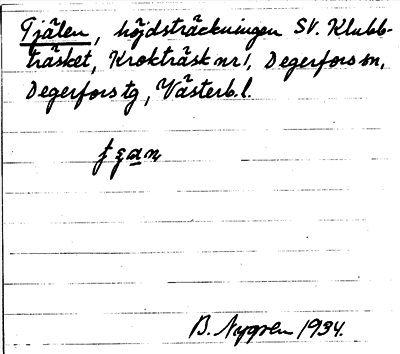 Tjälen, höjdsträckningen SV. Klubb-
träsket, Krokträsk nr 1, Degerfors sn,
Degerfors tg, Västerb. l.
B. Nygren 1934.